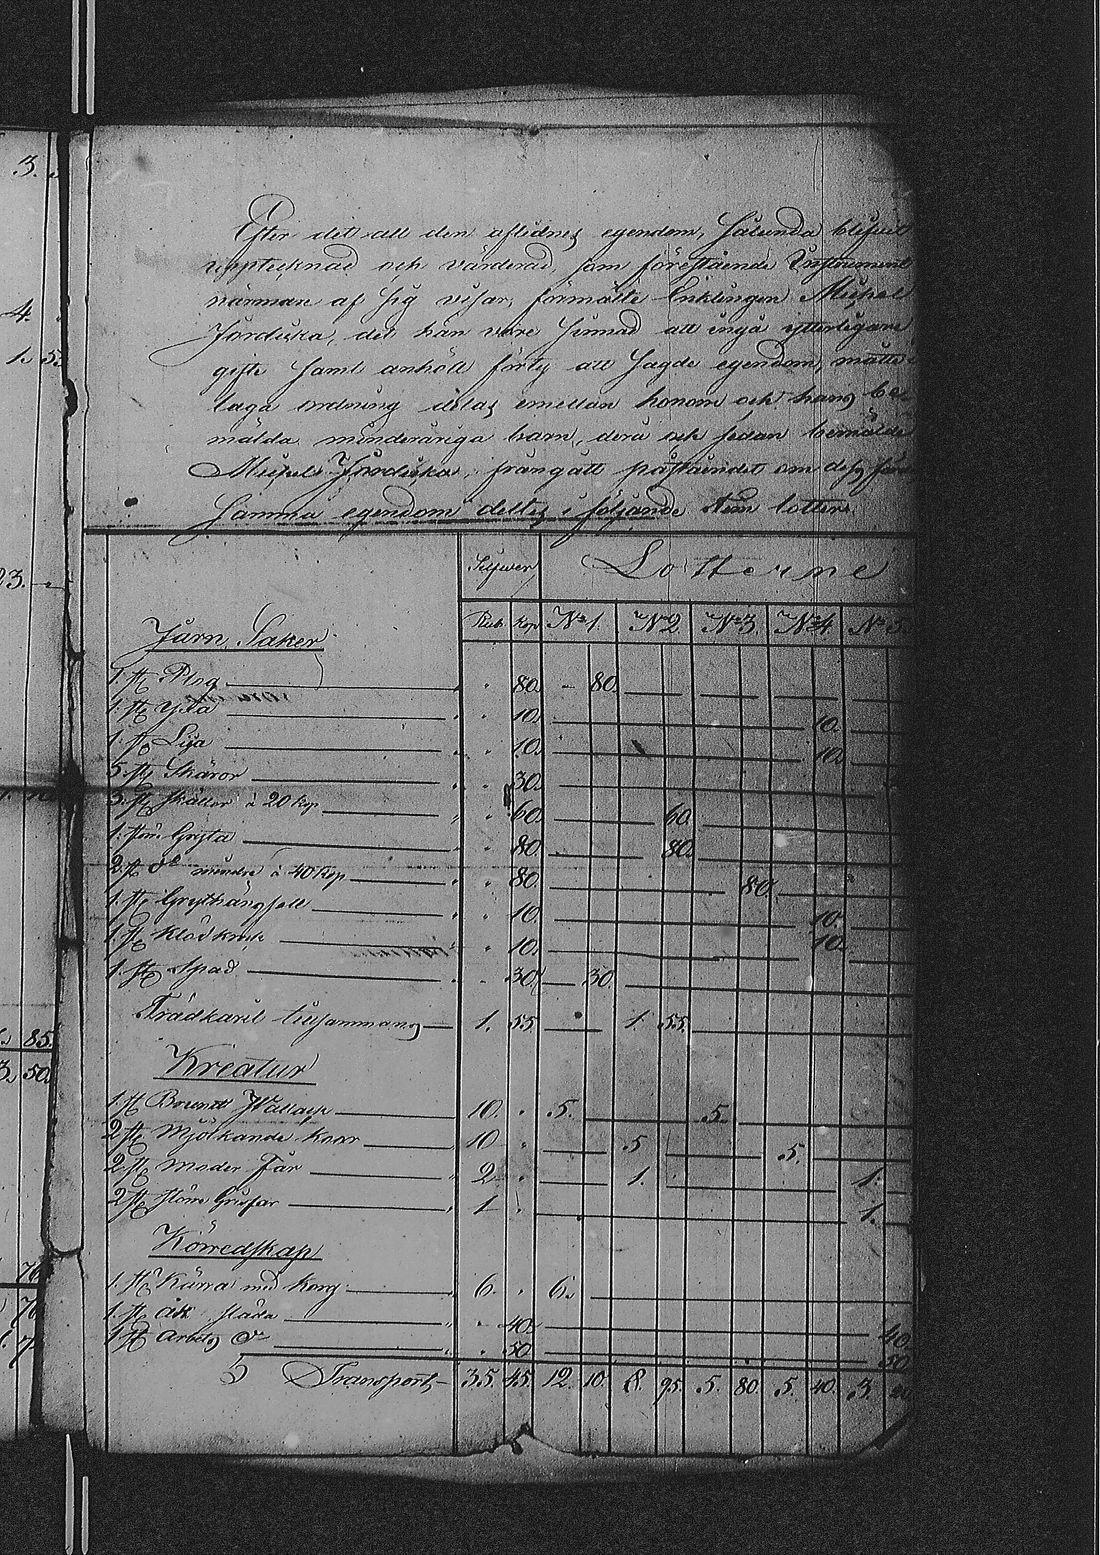 3.
4.
1. 5
23. –
85.
3. 50.
76
76
7
Efter det att den aflidnes egendom, sålunda blifvit
upptecknad och värderad, som förestående Instrument
närmare af sig visar, förmälte Enklingen Michel
det han vore sinnad att ingå ytterligare
gifte samt anhöll förty att sagde egendom, måtte i
laga ordning delas emellan honom och hans be-
mälda minderåriga barn, dera och sedan bemälde
Michel frångått påståendet om dess
Samma egendom deltes i följande fem lotter.
Silfwer Lotterne
Rub. Kop. No 1. No 2. No 3. No 4. No 5.
Järn Saker
1. st Plog " 80. – 80.
1. st yxa " " 10. 10.
1. st Lija " " 10. 10.
5. st Skäror " " 30.
3. st skällor à 20 kop " " 60. 60.
1. större Gryta " " 80. 80.
2. st do mindre à 40 kop " " 80. 80.
1. st " " 10. 10.
1. st " " 10. 10.
1. st Spad " " 30. 30.
Trädkäril tillsammans 1. 55. 1. 55.
Kreatur
1. st Brunet Wallack 10. " 5. 5.
2. st Mjölkande kor 10 " 5. 5.
2. st moder Får 2 " 1. 1.
2. st större Grisar 1 " 1.
Körredskap
1. st Kärra med korg 6. " 6.
1. st åk släda " " 40. 40.
1. st Arbets do " " 50. 50.
Transport 35. 45. 12. 10. 8. 95. 5. 80. 5. 40. 3. 20